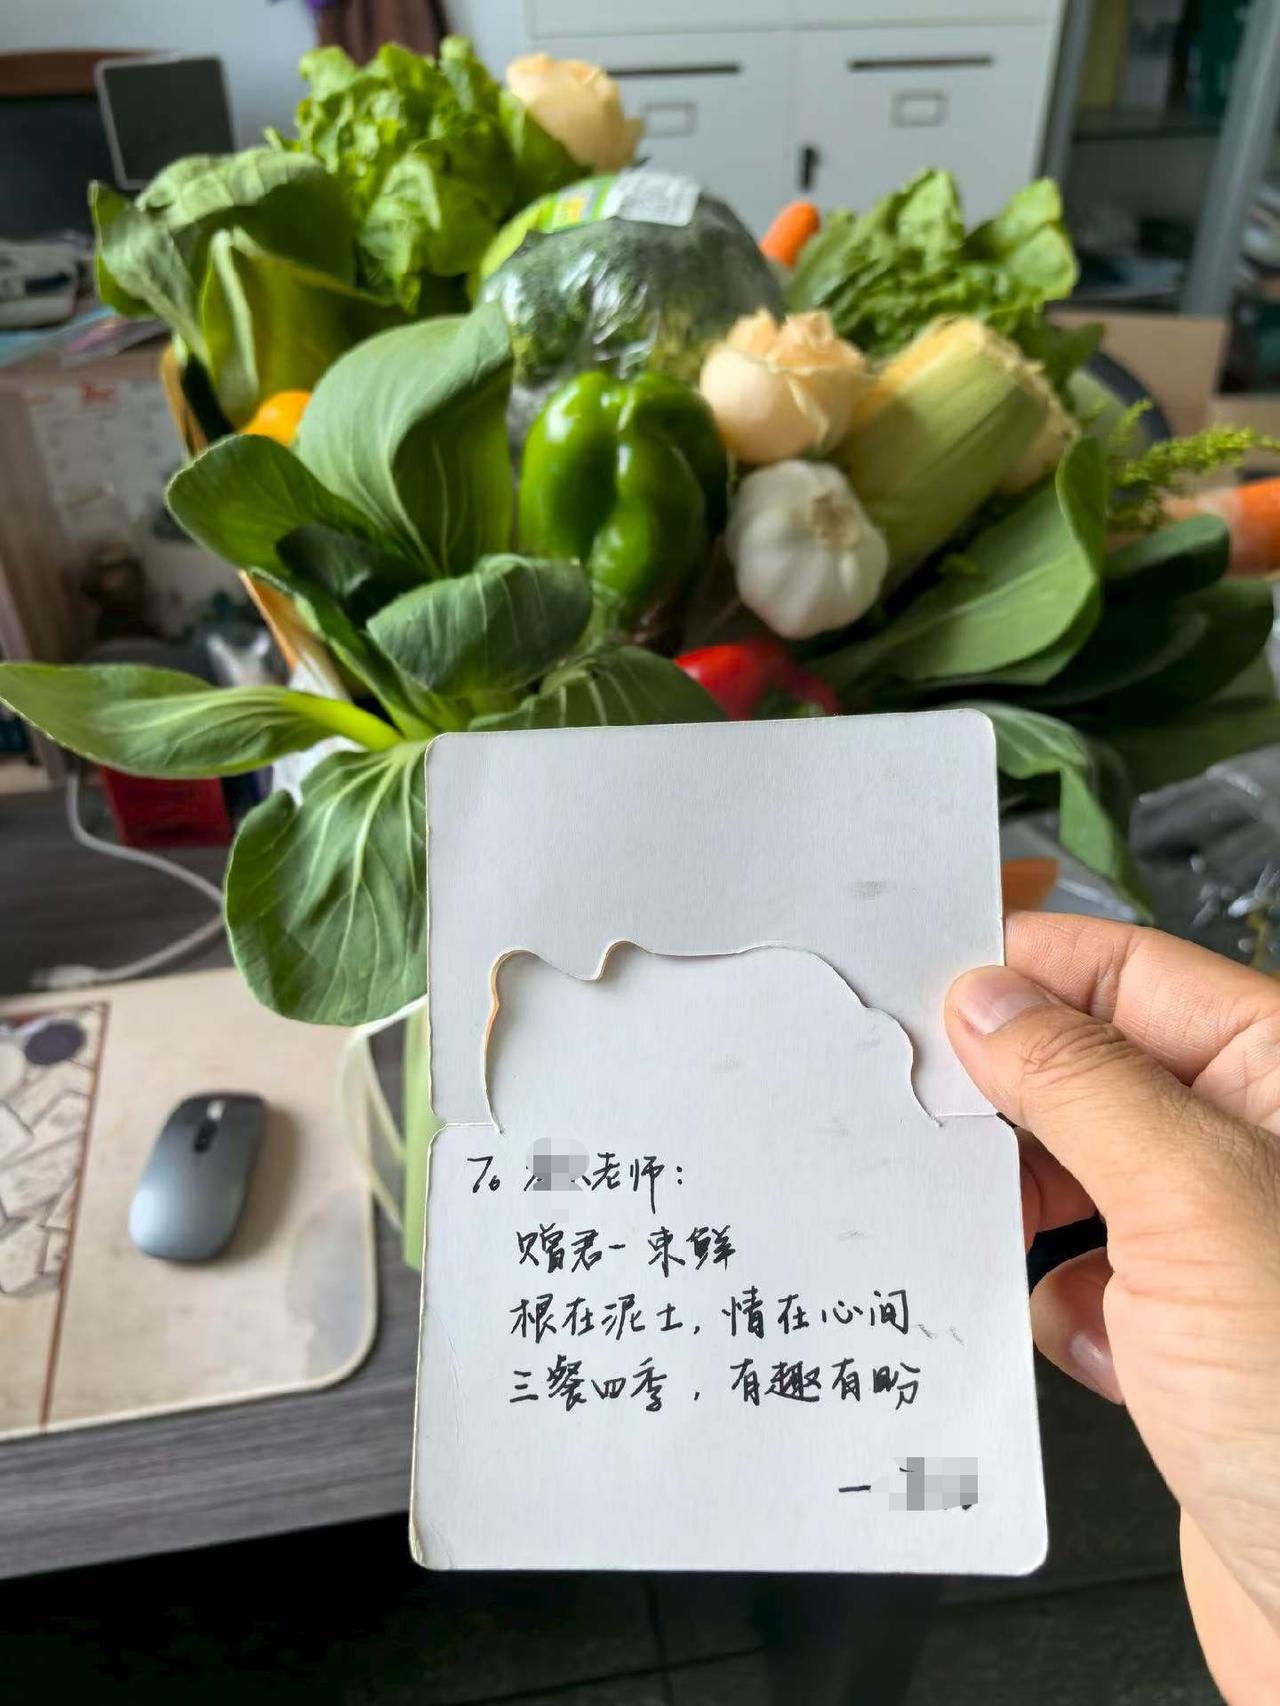 To 老师:
赠君一束鲜
根在泥土,情在心间、
三餐四季,有趣有盼